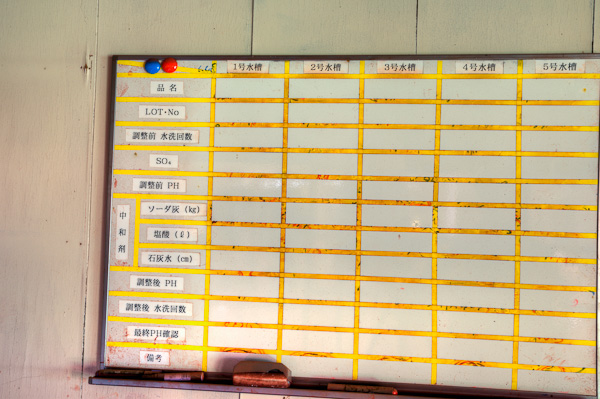 1号水槽 2号水槽 3号水槽 4号水槽 5号水槽
品名
LOT・No
調整前 水洗回数
SO₄
調整前 PH
中和剤
ソーダ灰 (kg)
塩酸 (ℓ)
石灰水 (cm)
調整後 PH
調整後 水洗回数
最終PH確認
備考